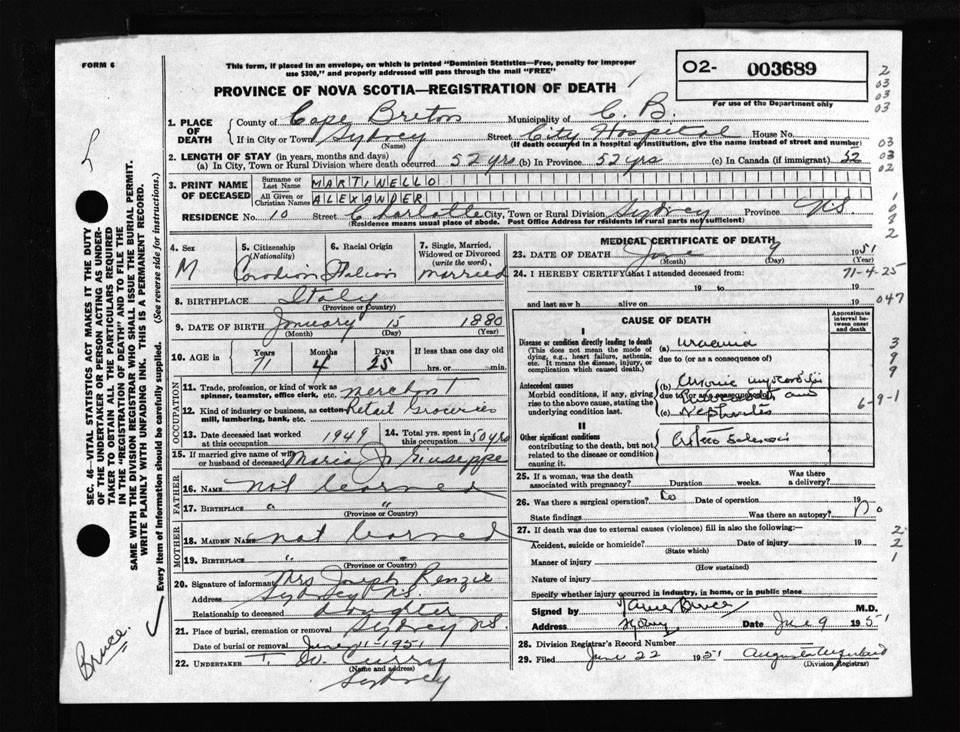 FORM 6
This form, if placed in an envelope, on which is printed "Dominion Statistics—Free, penalty for improper
use $300," and properly addressed will pass through the mail "FREE"
O2- 003689
For use of the Department only
PROVINCE OF NOVA SCOTIA—REGISTRATION OF DEATH
1. PLACE OF DEATH
County of Cape Breton Municipality of C. B.
If in City or Town Sydney Street City Hospital House No.
(Name) (If death occurred in a hospital or institution, give the name instead of street and number)
2. LENGTH OF STAY (in years, months and days)
(a) In City, Town or Rural Division where death occurred 52 yrs (b) In Province 52 yrs (c) In Canada (if immigrant) 52
3. PRINT NAME OF DECEASED
Surname or Last Name MARTINELLO
All Given or Christian Names ALEXANDER
RESIDENCE No. 10 Street Charlotte City, Town or Rural Division Sydney Province N.S
(Residence means usual place of abode. Post Office Address for residents in rural parts not sufficient)
4. Sex M
5. Citizenship (Nationality) Canadian
6. Racial Origin Italian
7. Single, Married, Widowed or Divorced (write the word) married
8. BIRTHPLACE Italy
(Province or Country)
9. DATE OF BIRTH January 15 1880
(Month) (Day) (Year)
10. AGE in Years Months Days If less than one day old
71 4 25 hrs. or min.
OCCUPATION
11. Trade, profession, or kind of work as spinner, teamster, office clerk, etc. merchant
12. Kind of industry or business, as cotton mill, lumbering, bank, etc. Retail Groceries
13. Date deceased last worked at this occupation 1949
14. Total yrs. spent in this occupation 50 yrs
15. If married give name of wife or husband of deceased Maria Giuseppe
FATHER
16. NAME not learned
17. BIRTHPLACE " "
(Province or Country)
MOTHER
18. MAIDEN NAME not learned
19. BIRTHPLACE " "
(Province or Country)
20. Signature of informant Mrs Joseph Renzie
Address Sydney N.S.
Relationship to deceased daughter
21. Place of burial, cremation or removal Sydney N.S.
Date of burial or removal June 11 - 1951
22. UNDERTAKER Curry
(Name and address)
Sydney
MEDICAL CERTIFICATE OF DEATH
23. DATE OF DEATH June 9 1951
(Month) (Day)
24. I HEREBY CERTIFY that I attended deceased from:
71-4-25
19 to 19
and last saw h alive on 19
047
CAUSE OF DEATH
Approximate interval between onset and death
I
Disease or condition directly leading to death
(This does not mean the mode of dying, e.g., heart failure, asthenia, etc. It means the disease, injury, or complication which caused death.)
(a) uraemia
due to (or as a consequence of)
Antecedent causes
Morbid conditions, if any, giving rise to the above cause, stating the underlying condition last.
(b) chronic myocarditis
due to (or as a consequence of)
(c) Nephritis
6-9-1
II
Other significant conditions
contributing to the death, but not related to the disease or condition causing it.
25. If a woman, was the death associated with pregnancy? Duration weeks. Was there a delivery?
26. Was there a surgical operation? No Date of operation 19
State findings Was there an autopsy? No
27. If death was due to external causes (violence) fill in also the following:—
Accident, suicide or homicide? Date of injury 19
(State which)
Manner of injury
(How sustained)
Nature of injury
Specify whether injury occurred in industry, in home, or in public place
Signed by Bruce M.D.
Address Sydney Date June 9 1951
28. Division Registrar's Record Number
29. Filed June 22 1951 Augusta
(Division Registrar)
SEC. 46—VITAL STATISTICS ACT MAKES IT THE DUTY
OF THE UNDERTAKER OR PERSON ACTING AS UNDER-
TAKER TO OBTAIN ALL THE PARTICULARS REQUIRED
IN THE "REGISTRATION OF DEATH" AND TO FILE THE
SAME WITH THE DIVISION REGISTRAR WHO SHALL ISSUE THE BURIAL PERMIT.
WRITE PLAINLY WITH UNFADING INK. THIS IS A PERMANENT RECORD.
Every item of Information should be carefully supplied. (See reverse side for instructions.)
Bruce.
2
03
03
03
03
03
02
1
0
3
2
3
9
9
2
2
1